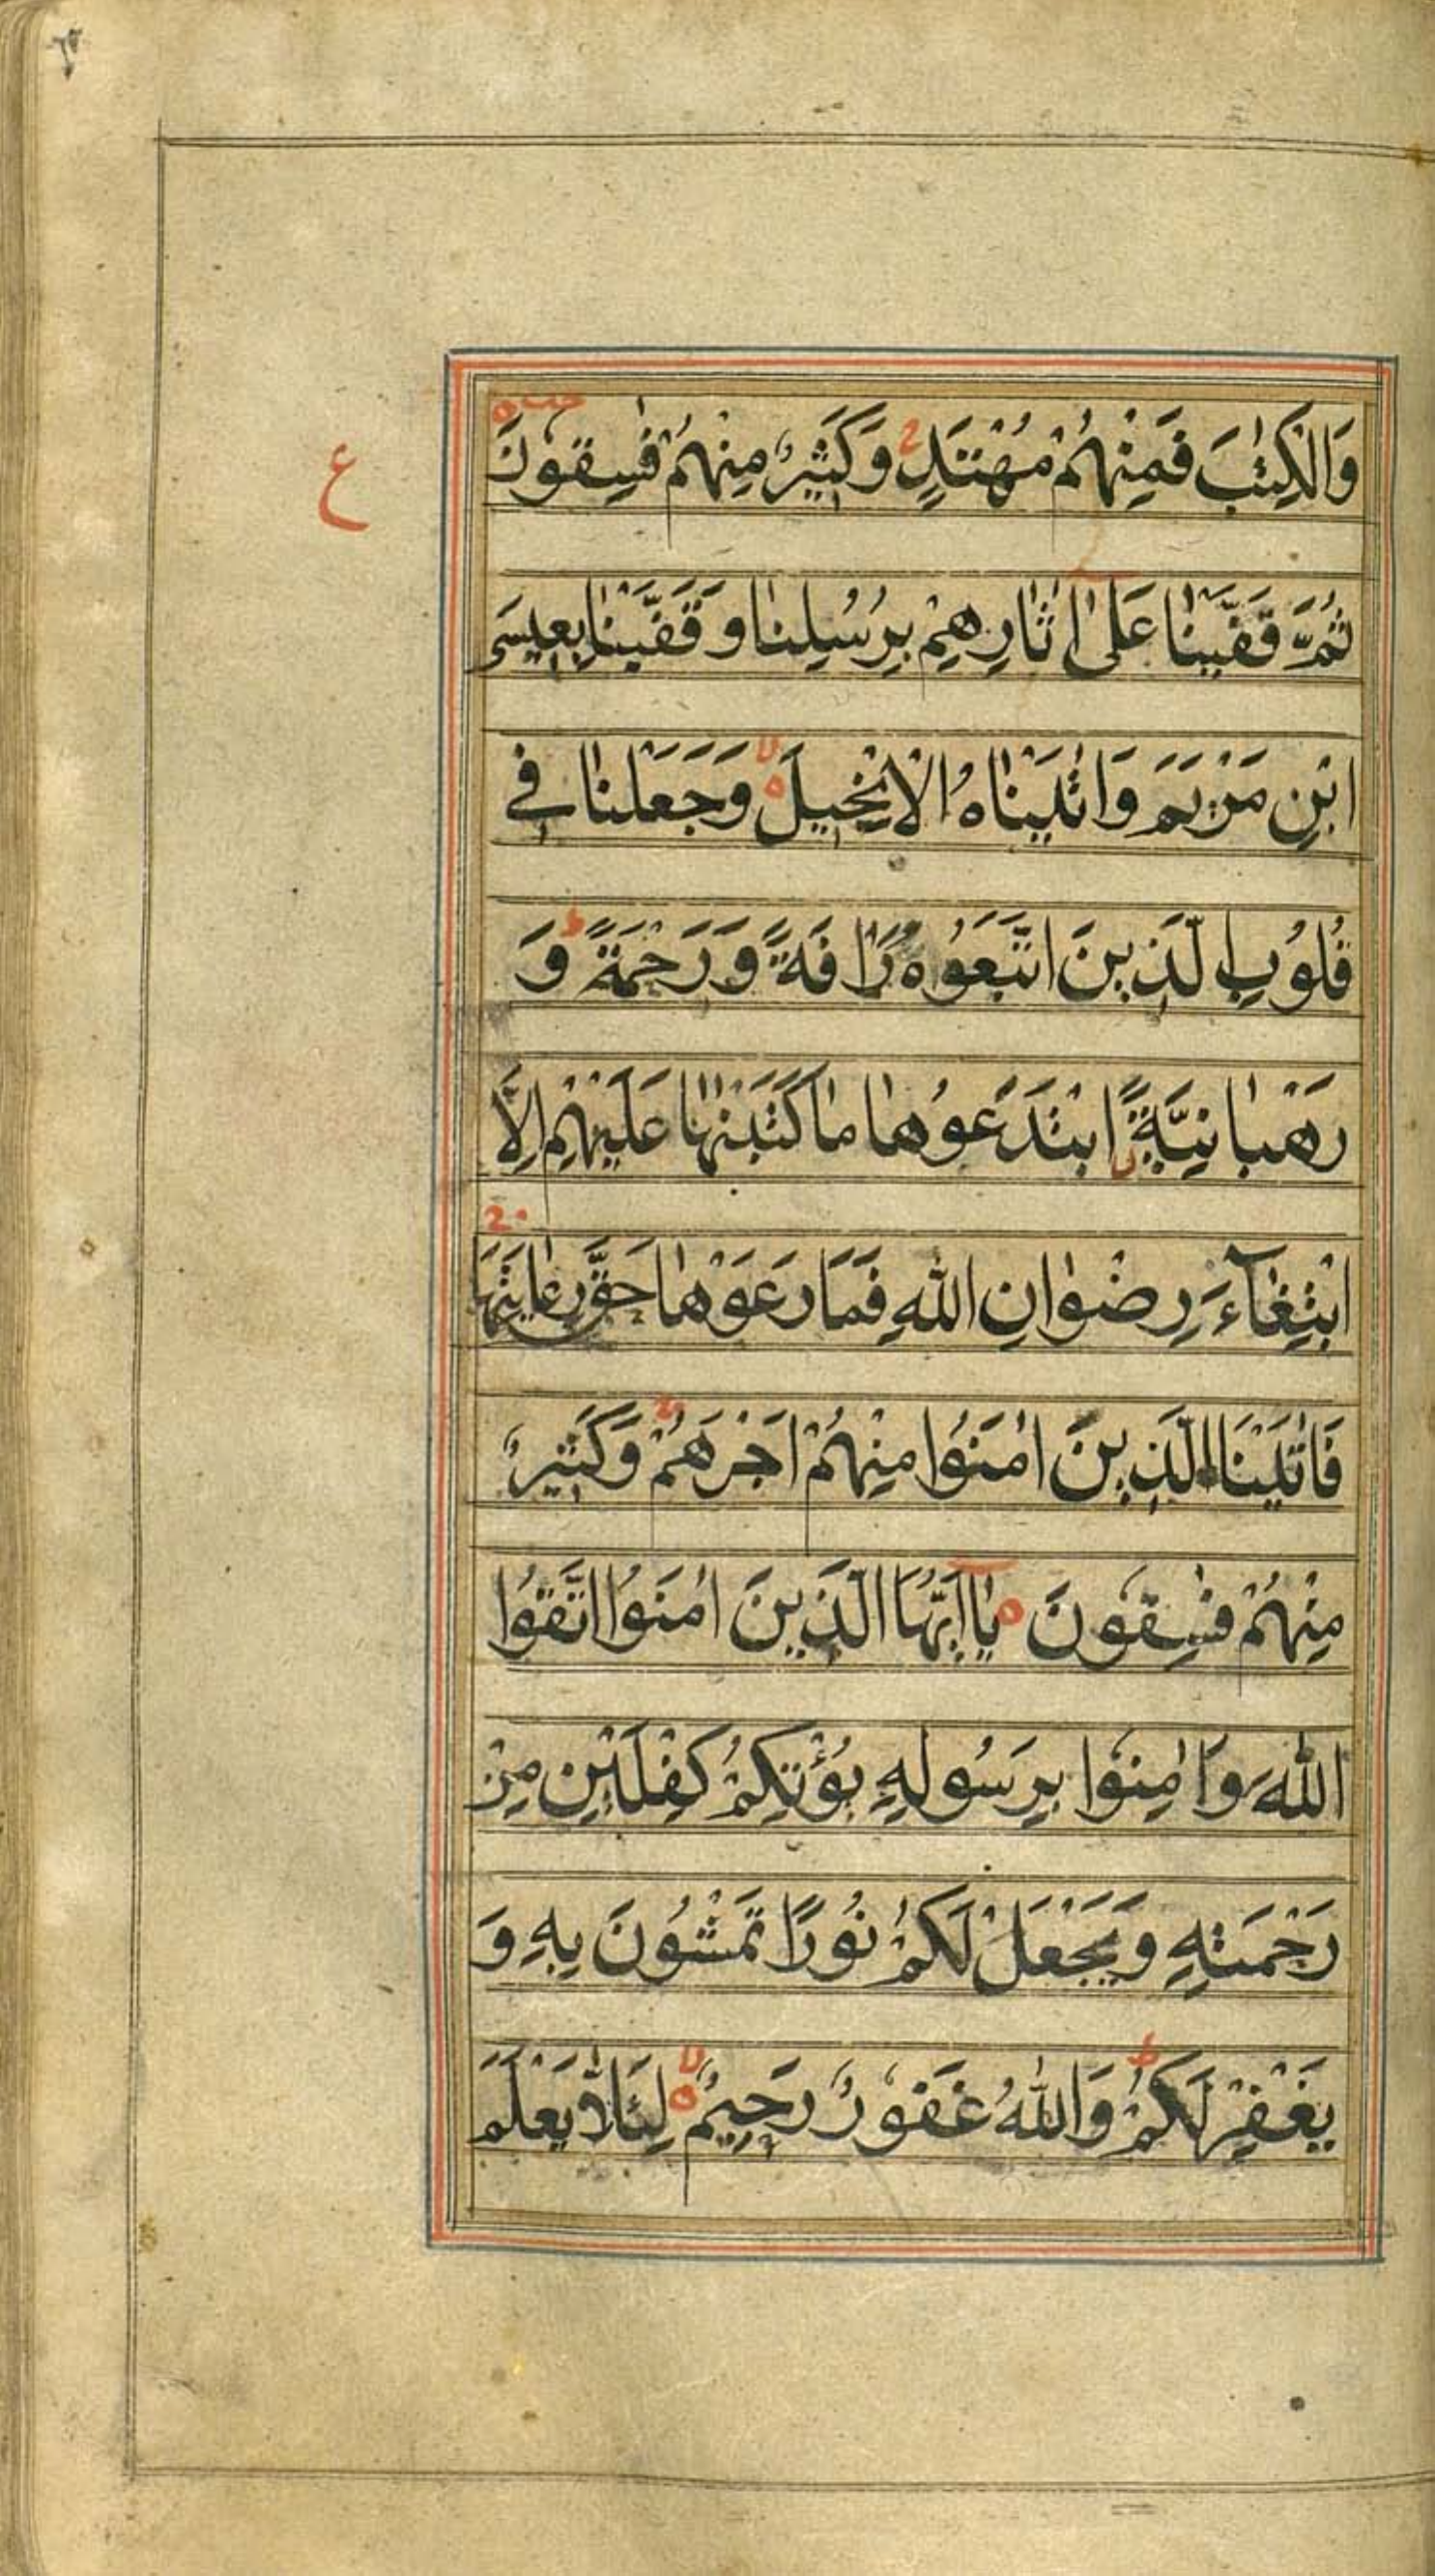 وَالْكِتٰبَ فَمِنْهُمْ مُهْتَدٍ ج وَكَثِيرٌ مِنْهُمْ فٰسِقُونَ
ع
ثُمَّ قَفَّيْنٰا عَلىٰ اٰثٰارِهِمْ بِرُسُلِنٰا وَقَفَّيْنٰا بِعِيسَى
ابْنِ مَرْيَمَ وَاٰتَيْنٰاهُ الْاِنْجِيلَ لا وَجَعَلْنٰا فِي
قُلُوبِ الَّذِينَ اتَّبَعُوهُ رَاْفَةً وَرَحْمَةً ط وَ
رَهْبٰانِيَّةً ابْتَدَعُوهٰا مٰا كَتَبْنٰهٰا عَلَيْهِمْ اِلَّا
ابْتِغٰآءَ رِضْوٰانِ اللّٰهِ فَمَا رَعَوْهٰا حَقَّ رِعٰايَتِهَا ج
فَاٰتَيْنَا الَّذِينَ اٰمَنُوا مِنْهُمْ اَجْرَهُمْ ج وَكَثِيرٌ
مِنْهُمْ فٰسِقُونَ يٰاۤ اَيُّهَا الَّذِينَ اٰمَنُوا اتَّقُوا
اللّٰهَ وَاٰمِنُوا بِرَسُولِهِ يُؤْتِكُمْ كِفْلَيْنِ مِنْ
رَحْمَتِهِ وَيَجْعَلْ لَكُمْ نُورًا تَمْشُونَ بِهِ وَ
يَغْفِرْ لَكُمْ ط وَاللّٰهُ غَفُورٌ رَحِيمٌ لا لِئَلَّا يَعْلَمَ